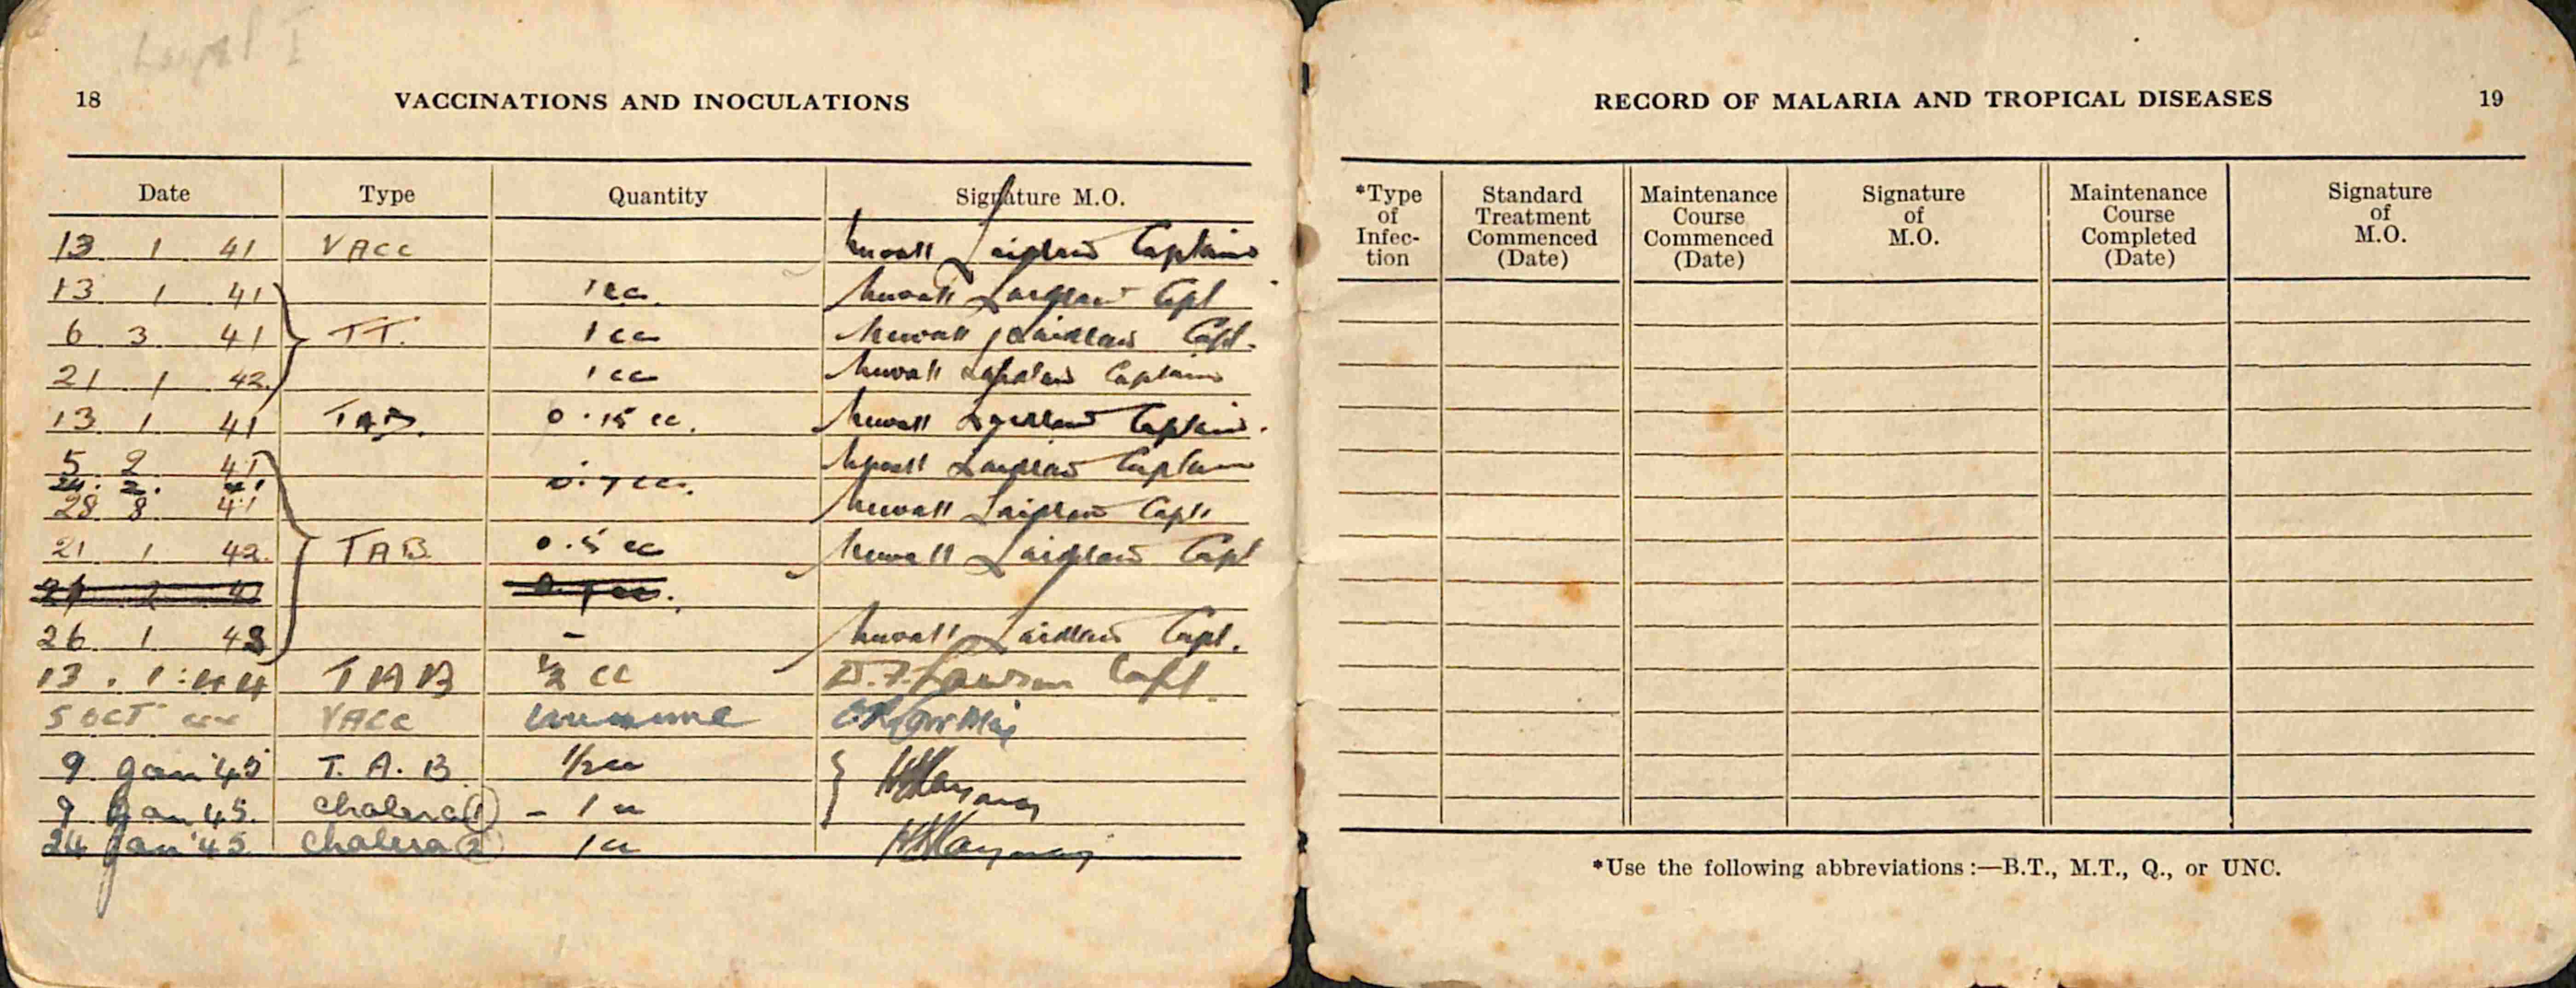 18 VACCINATIONS AND INOCULATIONS
Date Type Quantity Signature M.O.
13 1 41 VACC Laidlaw Captain
13 1 41 1 cc. Laidlaw Capt
6 3 41 TT. 1 cc Laidlaw Capt.
21 1 42. 1 cc Laidlaw Captain
13 1 41 TAB. 0.15 cc. Laidlaw Captain.
5 2 41 Laidlaw Captain
24. 2. 41
28 8 41 Laidlaw Capt
21 1 42. TAB 0.5 cc Laidlaw Capt
26 1 43 - Laidlaw Capt.
13. 1:44 TAB ½ cc Capt.
5 OCT VACC
9 Jan '45 T. A. B 1/2cc
9 Jan 45. Cholera (1) - 1 cc
24 Jan '45. Cholera (2) 1cc
RECORD OF MALARIA AND TROPICAL DISEASES 19
*Type of Infec- tion Standard Treatment Commenced (Date) Maintenance Course Commenced (Date) Signature of M.O. Maintenance Course Completed (Date) Signature of M.O.
*Use the following abbreviations:—B.T., M.T., Q., or UNC.